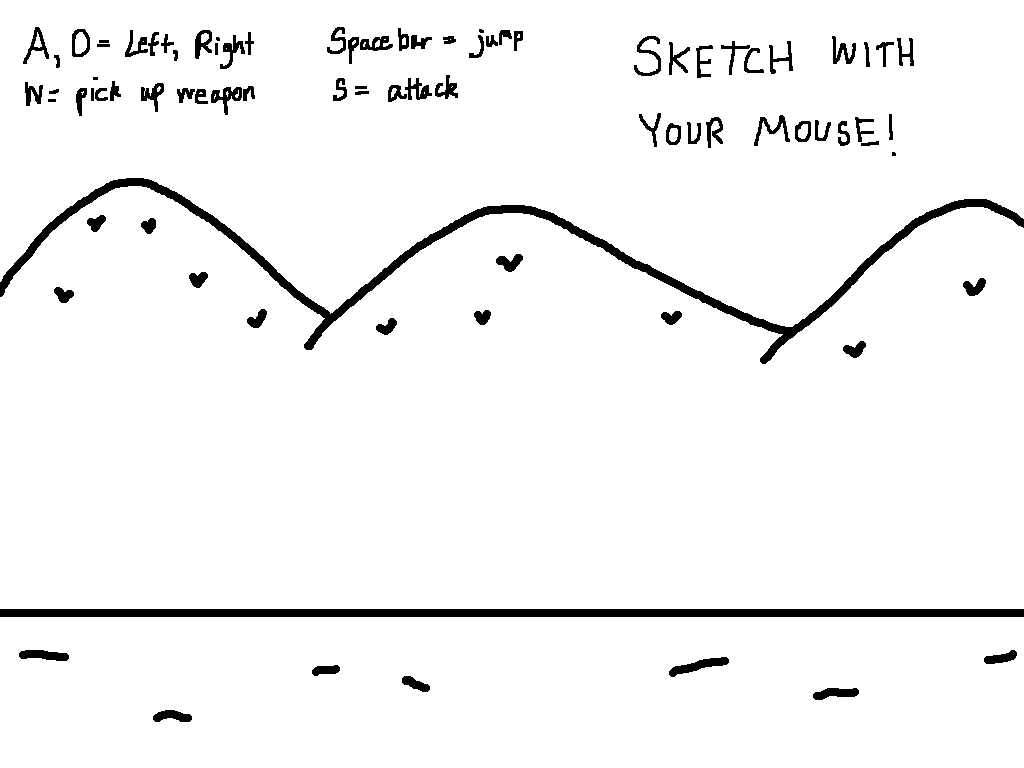 A, D = Left, Right
W = pick up weapon
Spacebar = jump
S = attack
SKETCH WITH
YOUR MOUSE!